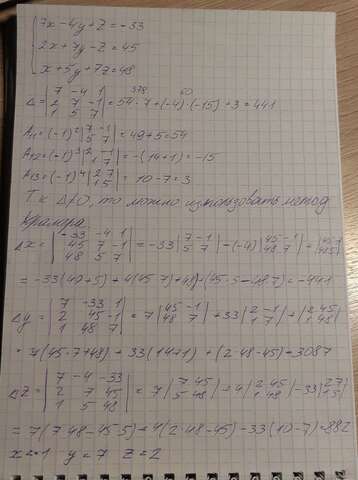 7x-4y+z=-33
2x+7y-z=45
x+5y+7z=48
378 60
Δ=|7 -4 1; 2 7 -1; 1 5 7|=54·7+(-4)·(-15)+3=441
A11=(-1)²|7 -1; 5 7|=49+5=54
A12=(-1)³|2 -1; 1 7|=-(14+1)=-15
A13=(-1)⁴|2 7; 1 5|=10-7=3
Т.к Δ≠0, то можно использовать метод
Крамера
Δx=|-33 -4 1; 45 7 -1; 48 5 7|=-33|7 -1; 5 7|-(-4)|45 -1; 48 7|+|45 7; 48 5|
=-33(49+5)+4(45·7+48)+(45·5-48·7)=-441
Δy=|7 -33 1; 2 45 -1; 1 48 7|=7|45 -1; 48 7|+33|2 -1; 1 7|+|2 45; 1 48|
=7(45·7+48)+33(14+1)+(2·48-45)=3087
Δz=|7 -4 -33; 2 7 45; 1 5 48|=7|7 45; 5 48|+4|2 45; 1 48|-33|2 7; 1 5|
=7(7·48-45·5)+4(2·48-45)-33(10-7)=882
x=-1 y=7 z=2